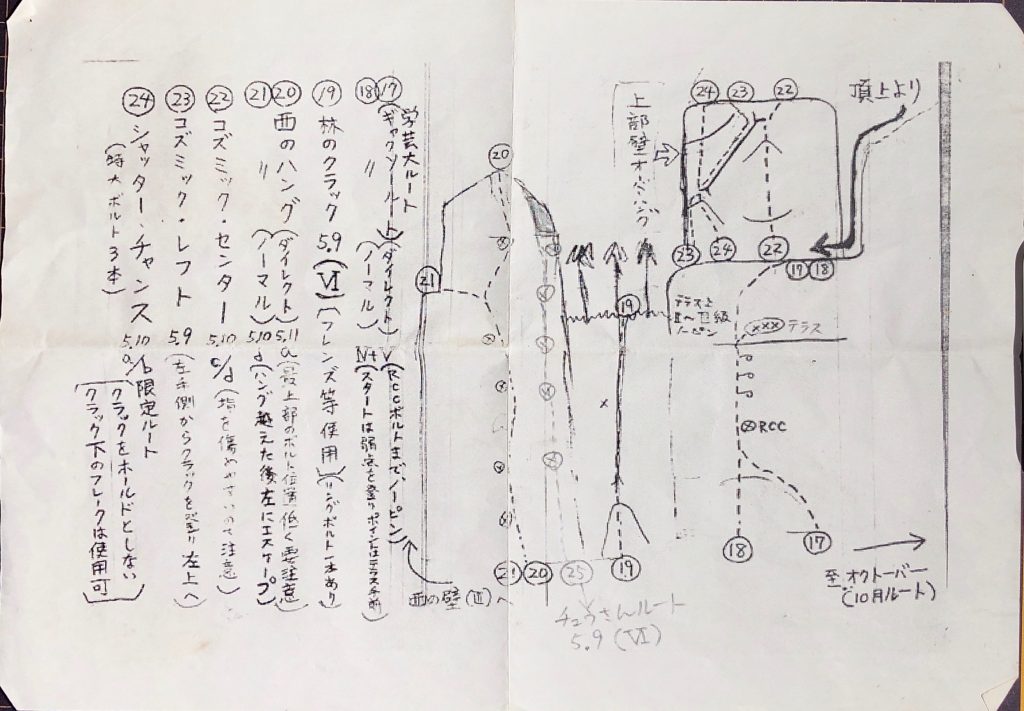 頂上より
㉔ ㉓ ㉒
上部壁オーバーハング
㉓ ㉔ ㉒
⑰ ⑱
テラス上
ノーピン
××× テラス
RCC
⑱ ⑰
至 オクトーバー
(10月ルート)
⑲
⑳
㉑
㉑ ⑳ ㉕ ⑲
チュウさんルート
5.9 (Ⅵ)
西の壁(Ⅲ)へ
学芸大ルート
⑰ (ギャクソウルート) (ダイレクト) Ⅴ (RCCボルトまで、ノーピン)
⑱ 〃 (ノーマル) Ⅳ+ (スタートは弱点を登り
⑲ 林のクラック 5.9 (Ⅵ) (フレンズ等使用) (リングボルト一本あり)
⑳ 西のハング (ダイレクト) 5.11a (最上部のボルト位置低く要注意)
㉑ 〃 (ノーマル) 5.10d (ハング越えた後左にエスケープ)
㉒ コズミック・センター 5.10c/d (指を傷めやすいので注意)
㉓ コズミック・レフト 5.9 (左手側からクラックを登り左上へ)
㉔ シャッター・チャンス 5.10a/b 限定ルート
(特大ボルト3本)
クラックをホールドとしない
クラック下のフレークは使用可